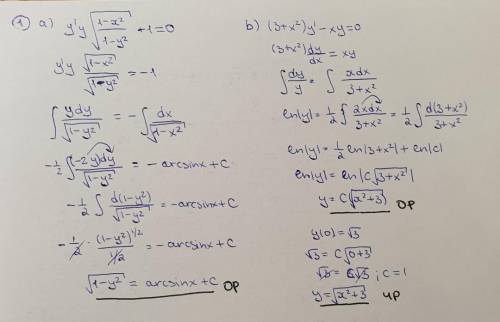 ① a) y'y √((1-x²)/(1-y²)) +1=0
y'y √(1-x²)/√(1-y²) = -1
∫ ydy/√(1-y²) = -∫ dx/√(1-x²)
-1/2 ∫ (-2y)dy/√(1-y²) = -arcsinx+C
-1/2 ∫ d(1-y²)/√(1-y²) = -arcsinx+C
-1/2 · (1-y²)^1/2/(1/2) = -arcsinx+C
√(1-y²) = arcsinx+C OP
b) (3+x²)y'-xy=0
(3+x²) dy/dx = xy
∫ dy/y = ∫ xdx/(3+x²)
ln|y| = 1/2 ∫ 2xdx/(3+x²) = 1/2 ∫ d(3+x²)/(3+x²)
ln|y| = 1/2 ln|3+x²| + ln|C|
ln|y| = ln|C√(3+x²)|
y = C√(x²+3) OP
y(0)=√3
√3 = C√(0+3)
√3 = C√3 ; C=1
y=√(x²+3) ЧР